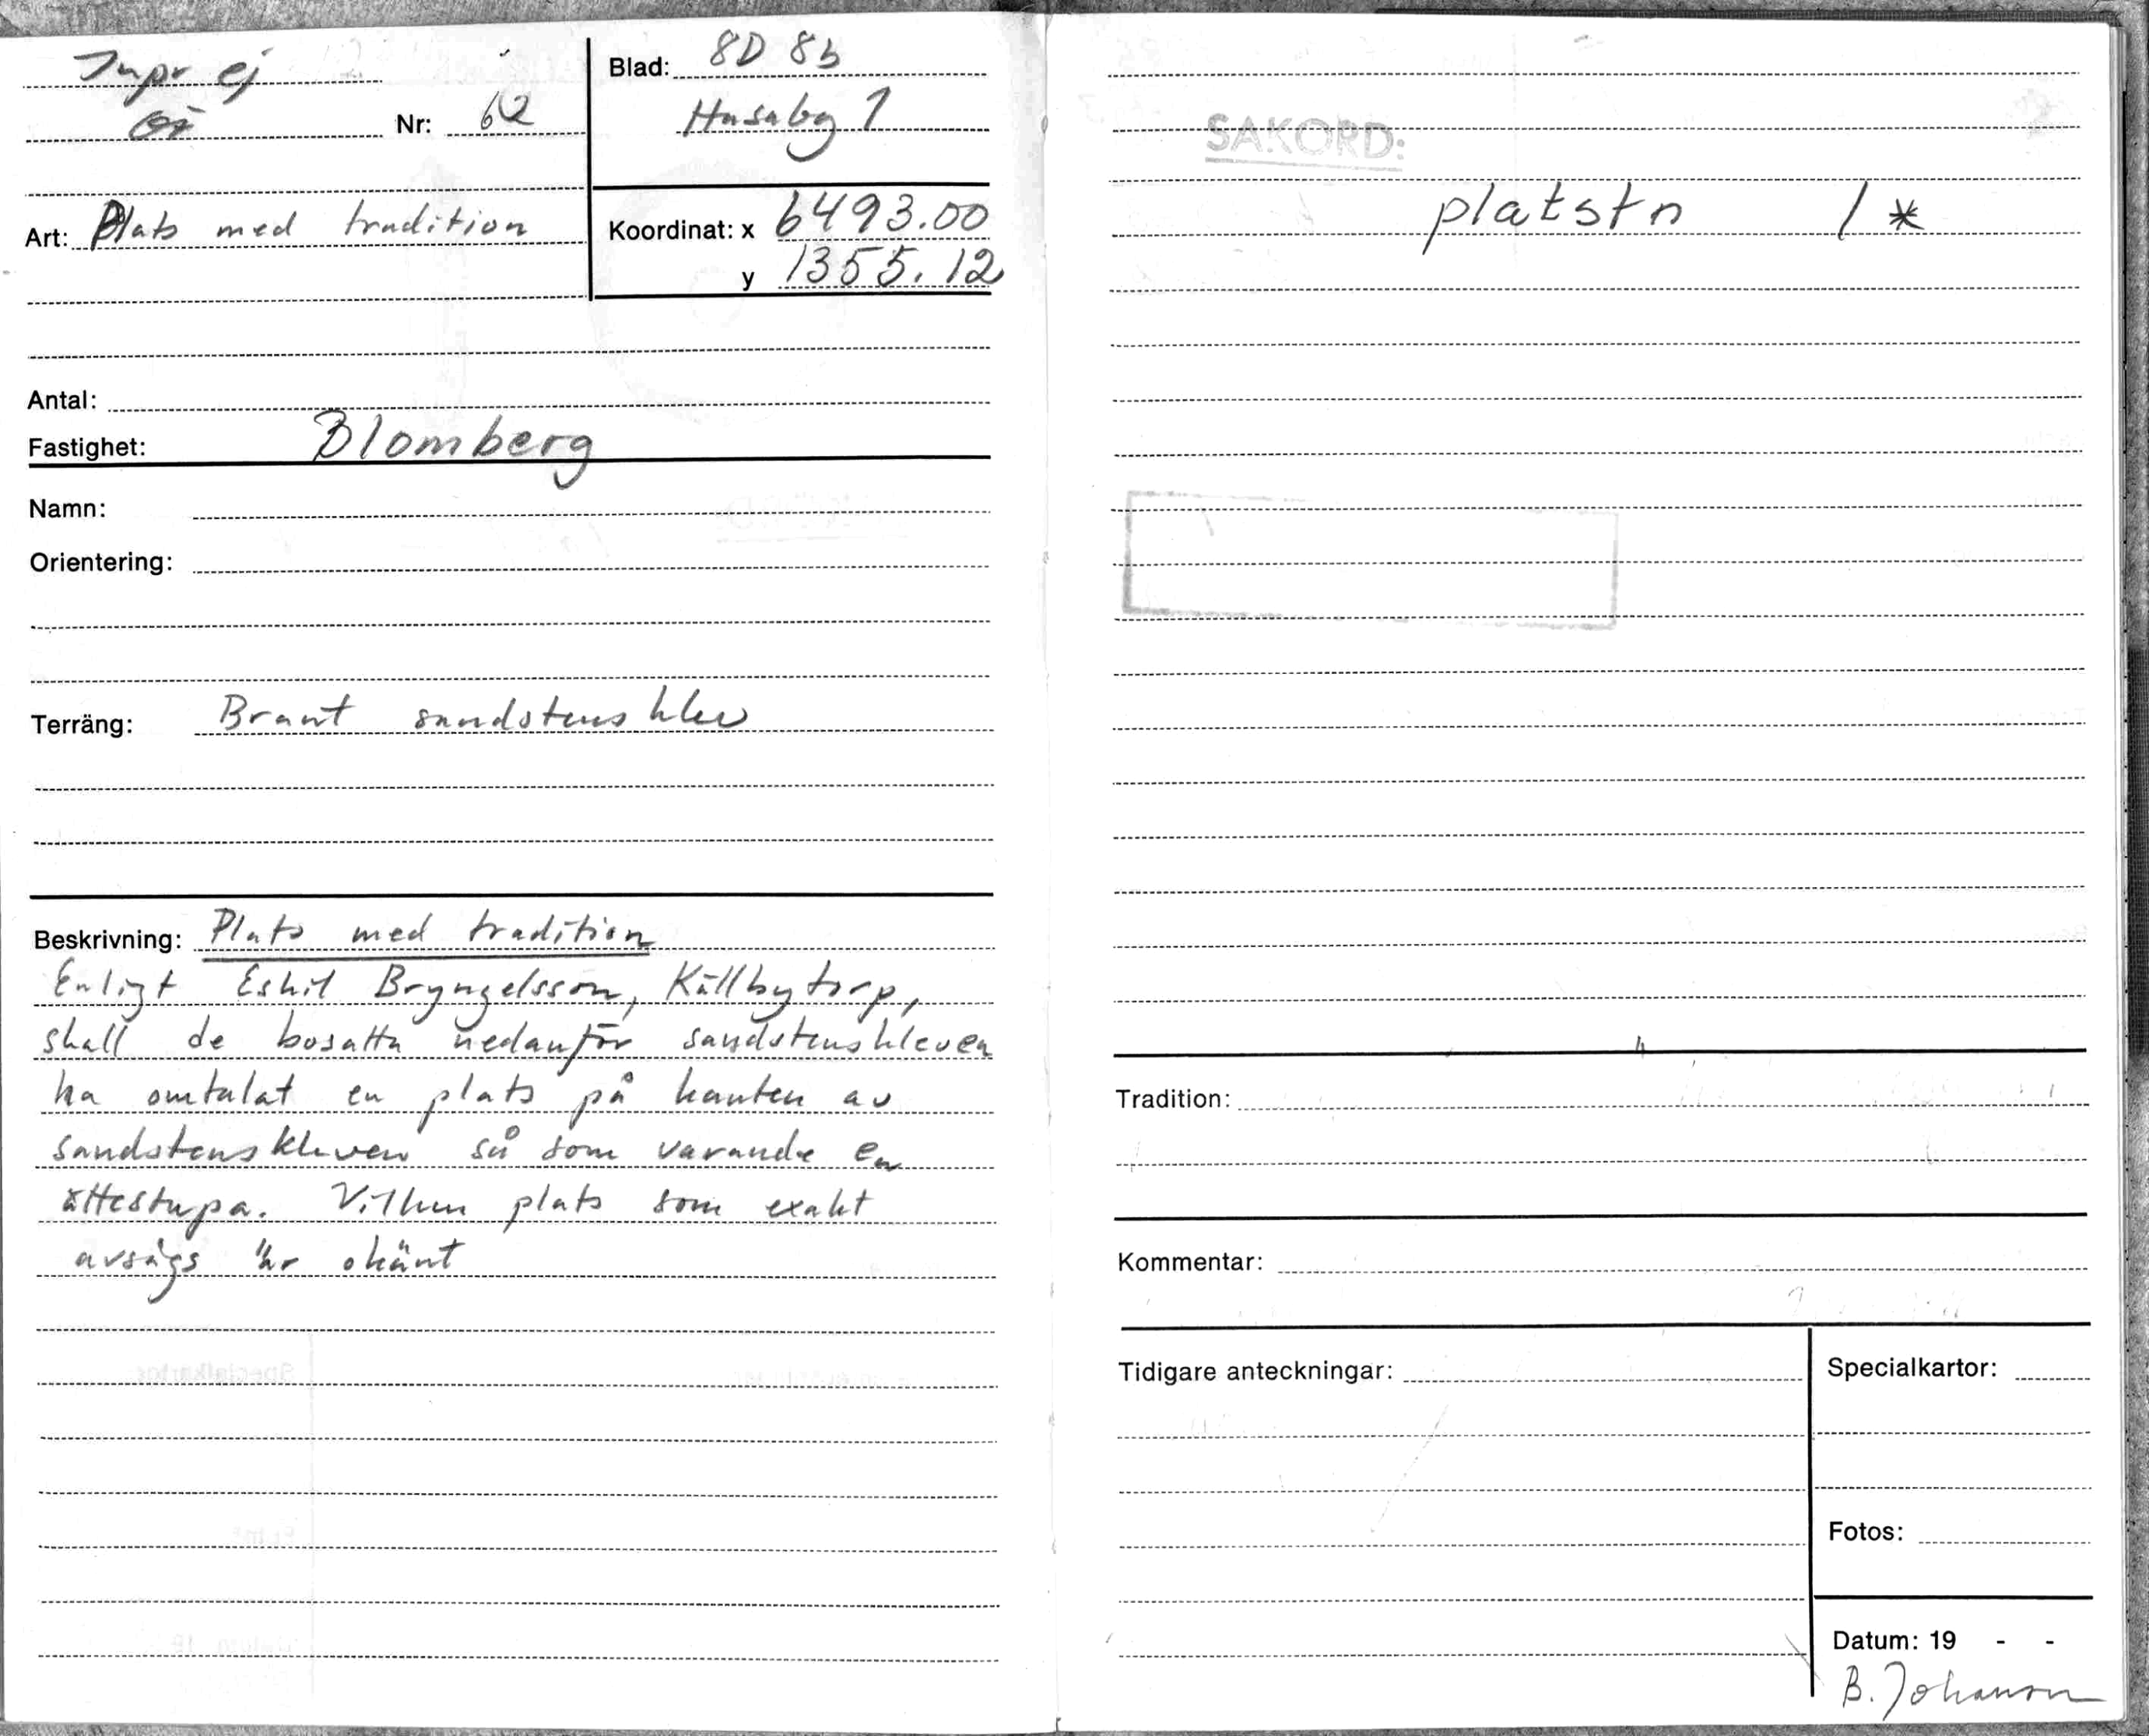 Inpr ej
Nr: 62
Art: Plats med tradition
Blad: 8D 8b
Husaby 1
Koordinat: x 6493.00
y 1355.12
Antal:
Fastighet: Blomberg
Namn:
Orientering:
Terräng: Brant sandstensklev
Beskrivning: Plats med tradition
Enligt Eskil Bryngelsson, Källbytorp,
skall de bosatta nedanför sandstenskleven
ha omtalat en plats på kanten av
sandstenskleven så som varande en
ättestupa. Vilken plats som exakt
avsågs är okänt
SAKORD:
platstn 1 *
Tradition:
Kommentar:
Tidigare anteckningar:
Specialkartor:
Fotos:
Datum: 19 - -
B. Johanson